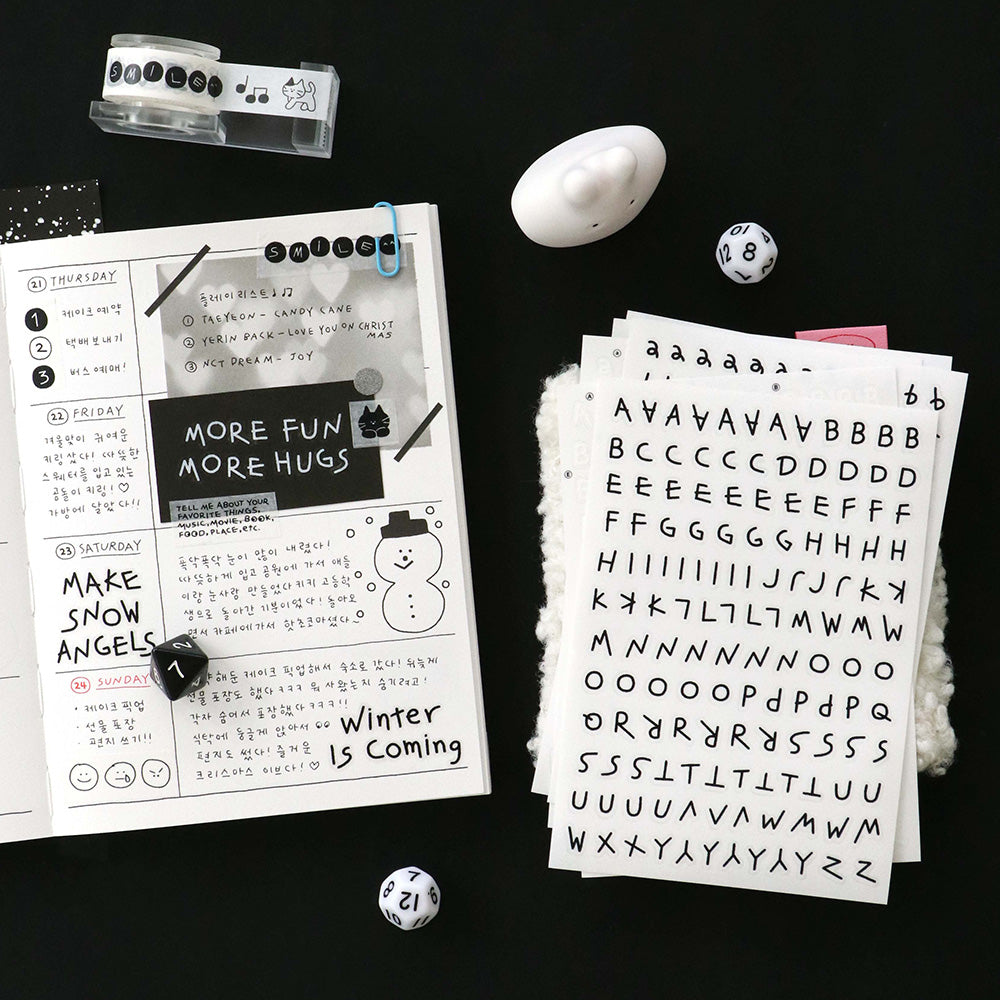 SMILE
SMILE
21 THURSDAY
1 케이크 예약
2 택배 보내기
3 버스 예매!
플레이리스트♩♫
① TAEYEON - CANDY CANE
② YERIN BACK - LOVE YOU ON CHRISTMAS
③ NCT DREAM - JOY
22 FRIDAY
겨울맞이 귀여운
키링 샀다! 따뜻한
스웨터를 입고 있는
곰돌이 키링!♡
가방에 달았다!!
MORE FUN
MORE HUGS
TELL ME ABOUT YOUR
FAVORITE THINGS.
MUSIC, MOVIE, BOOK,
FOOD, PLACE, etc.
23 SATURDAY
MAKE
SNOW
ANGELS
폭닥폭닥 눈이 많이 내렸다!
따뜻하게 입고 공원에 가서 애들
이랑 눈사람 만들었다 키키 고등학
생으로 돌아간 기분이었다! 돌아오
면서 카페에 가서 핫초코 마셨다~
24 SUNDAY
• 케이크 픽업
• 선물 포장
• 편지 쓰기!!
해둔 케이크 픽업해서 숙소로 갔다! 뒤늦게
선물 포장도 했다 ㅋㅋㅋ 뭐 사왔는지 숨기려고!
각자 숨어서 포장했다 ㅋㅋㅋ!!
식탁에 둥글게 앉아서
편지도 썼다! 즐거운
크리스마스 이브다!♡
Winter
Is Coming
7
2
8
12
10
2
7
12
8
9
11
10
a a a a a a
b b
A
B
A
E
A A A A A A A B B B B
B C C C C C D D D D D
E E E E E E E E F F F
F F G G G G G H H H H
H I I I I I I I I J J J J K K
K K K L L L L L M W M W
M N N N N N N N O O O
O O O O O O P P P P Q
Q R R R R R R S S S S
S S S S T T T T T T U U
U U U U V V V W M W M
W X X Y Y Y Y Y Y Z Z